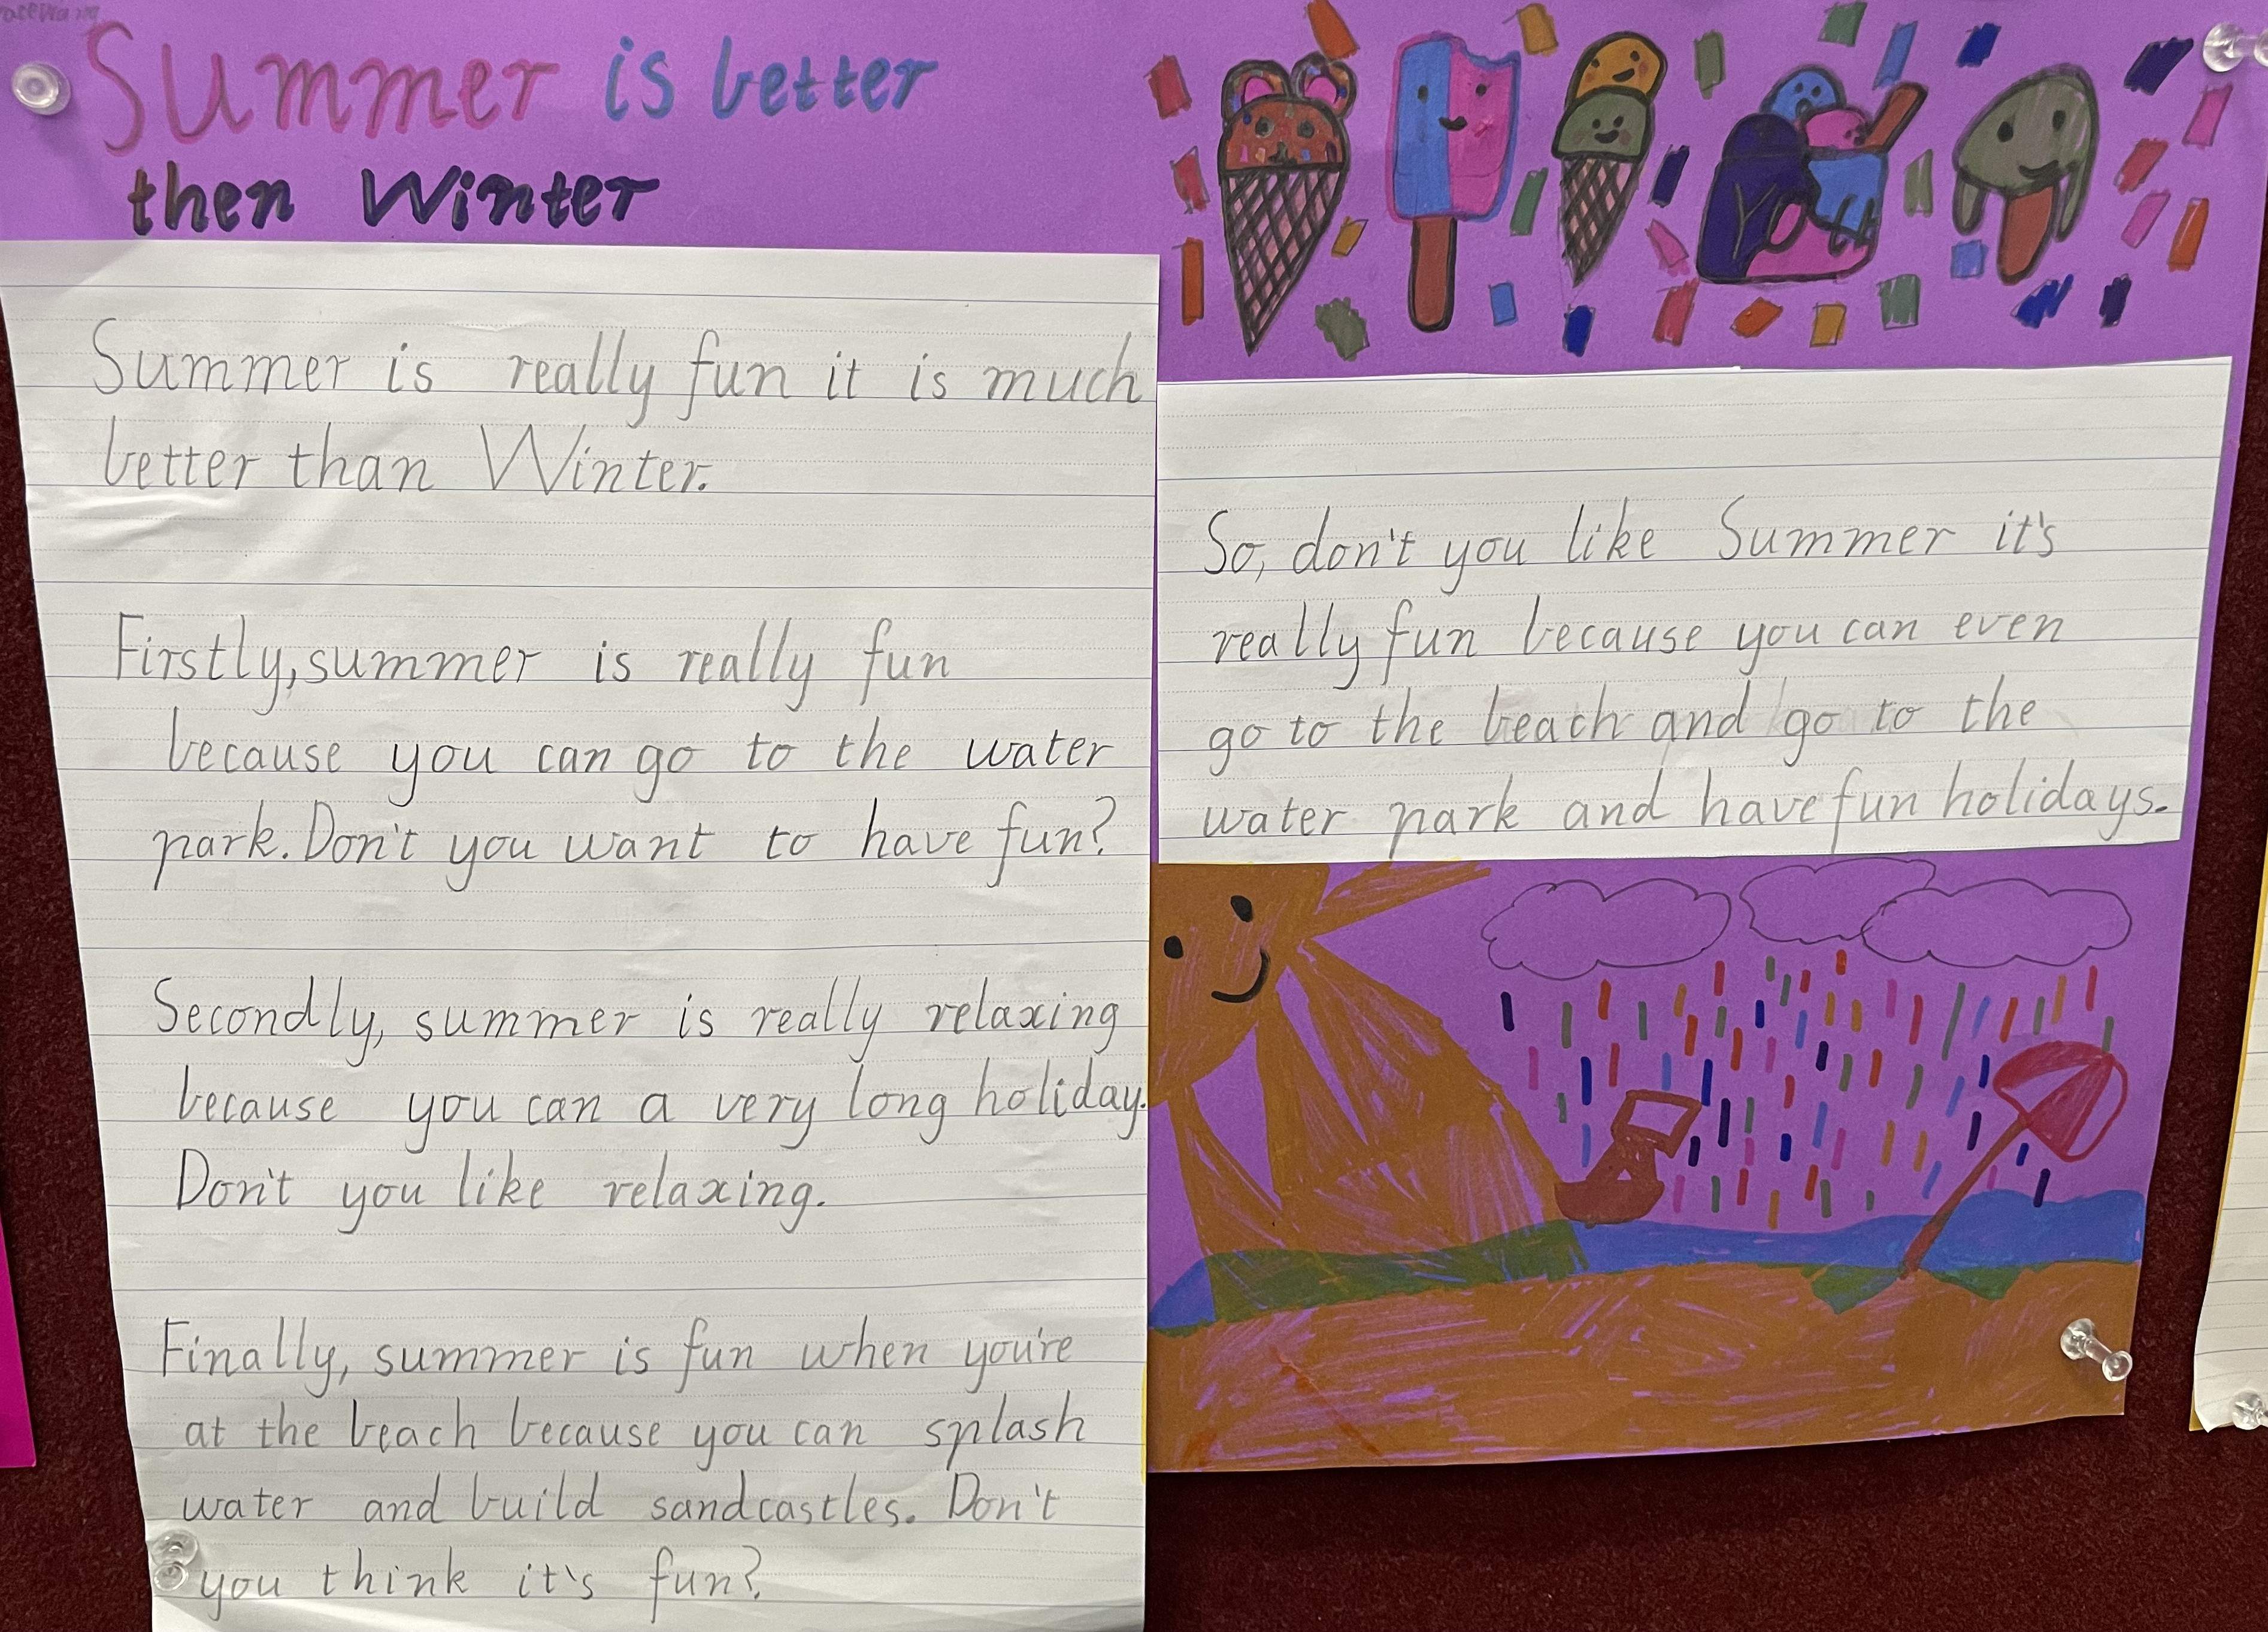 Summer is better
then Winter
Summer is really fun it is much
better than Winter.
Firstly, summer is really fun
because you can go to the water
park. Don't you want to have fun?
Secondly, summer is really relaxing
because you can a very long holiday.
Don't you like relaxing.
Finally, summer is fun when you're
at the beach because you can splash
water and build sandcastles. Don't
you think it's fun?
So, don't you like Summer it's
really fun because you can even
go to the beach and go to the
water park and have fun holidays.